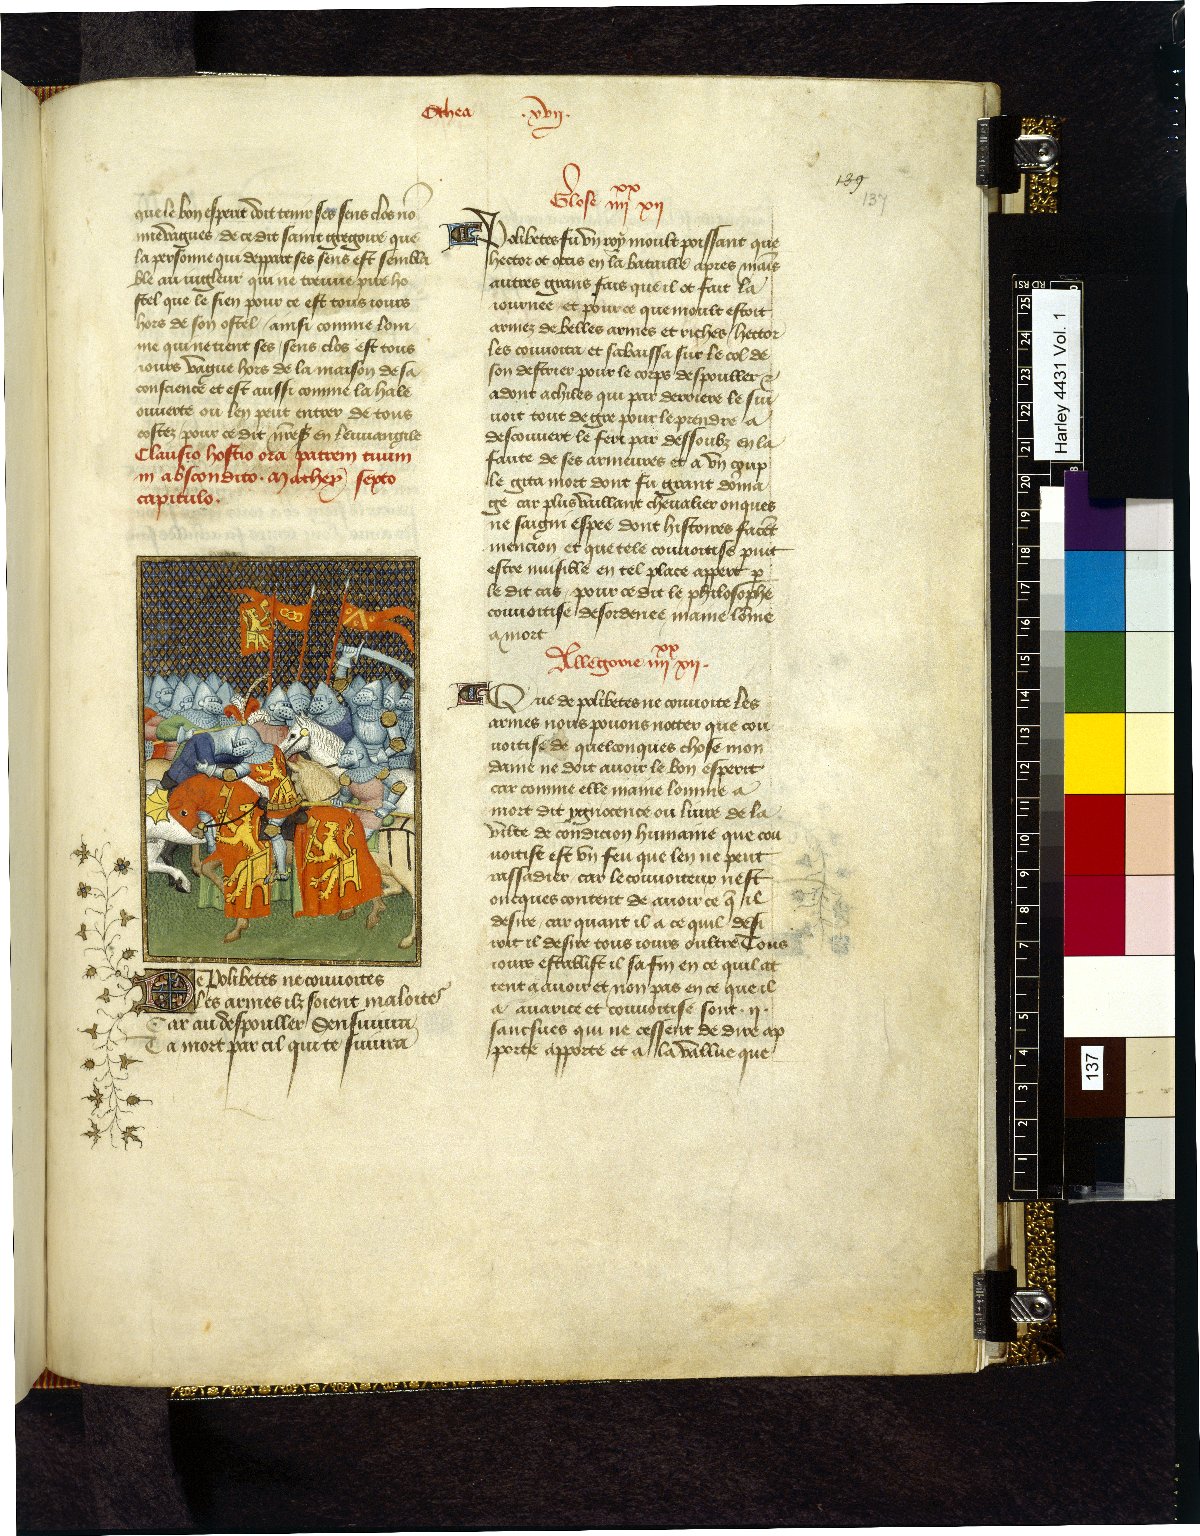 Othea .xvii.
139
137
que le bon esperit doit tenir ses sens clos no
mie vagues de ce dit saint gregoire que
la personne qui depart ses sens est sembla
ble au iugleur qui ne treuve pire ho
stel que le sien pour ce est tous iours
hors de son ostel / ainsi comme lom
me qui ne tient ses sens clos est tous
iours vague hors de la maison de sa
conscience et est aussi comme la hale
ouverte ou len peut entrer de tous
costez / pour ce dit nrẽs en leuuangile
Clauso hostio ora patrem tuum
in abscondito. Mathey septo
capitulo.
De Polibetes ne couuoites
Les armes ilz soient maloites
Car au despouller sensuiura
Ta mort par cil qui te suiura
Glose iiii xx xii
Polibetes fu vn roy moult poissant que
hector ot occis en la bataille apres mais
autres grans fais que il ot fait la
iournee et pour ce que moult estoit
armez de belles armes et riches / hector
les couuoita et sabaissa sur le col de
son destrier pour le corps despouller &
adont achiles qui par derriere le sui
uoit tout de gre pour le prendre a
descouuert le feri par dessoubz en la
faute de ses armeures et a vn coup
le gita mort dont fu grant dõma
ge car plus vaillant cheualier onques
ne saigni espee dont histoires facẽt
mencion et que tele couuoitise puit
estre nuisible en tel place appert p
le dit cas / pour ce dit le philosophe
couuoitise desordenee maine lõme
a mort
Allegorie iiii xx xii.
Que de polibetes ne couuoite les
armes nous pouons notter que cou
uoitise de quelconques chose mon
daine ne doit auoir le bon esperit
car comme elle maine lomme a
mort dit ygnocence ou liure de la
vilte de condicion humaine que cou
uoitise est vn feu que len ne peut
rassadier car le couuoiteux nest
oncques content de auoir ce q̃ il
desire / car quant il a ce quil desi
roit il desire tous iours oultre Tous
iours establist il sa fin en ce quil at
tent a auoir et non pas en ce que il
a auarice et couuoitise sont .ii.
sansues qui ne cessent de dire ap
porte apporte et a la vallue que
Harley 4431 Vol. 1
137
25
24
23
22
21
20
19
18
17
16
15
14
13
12
11
10
9
8
7
6
5
4
3
2
1